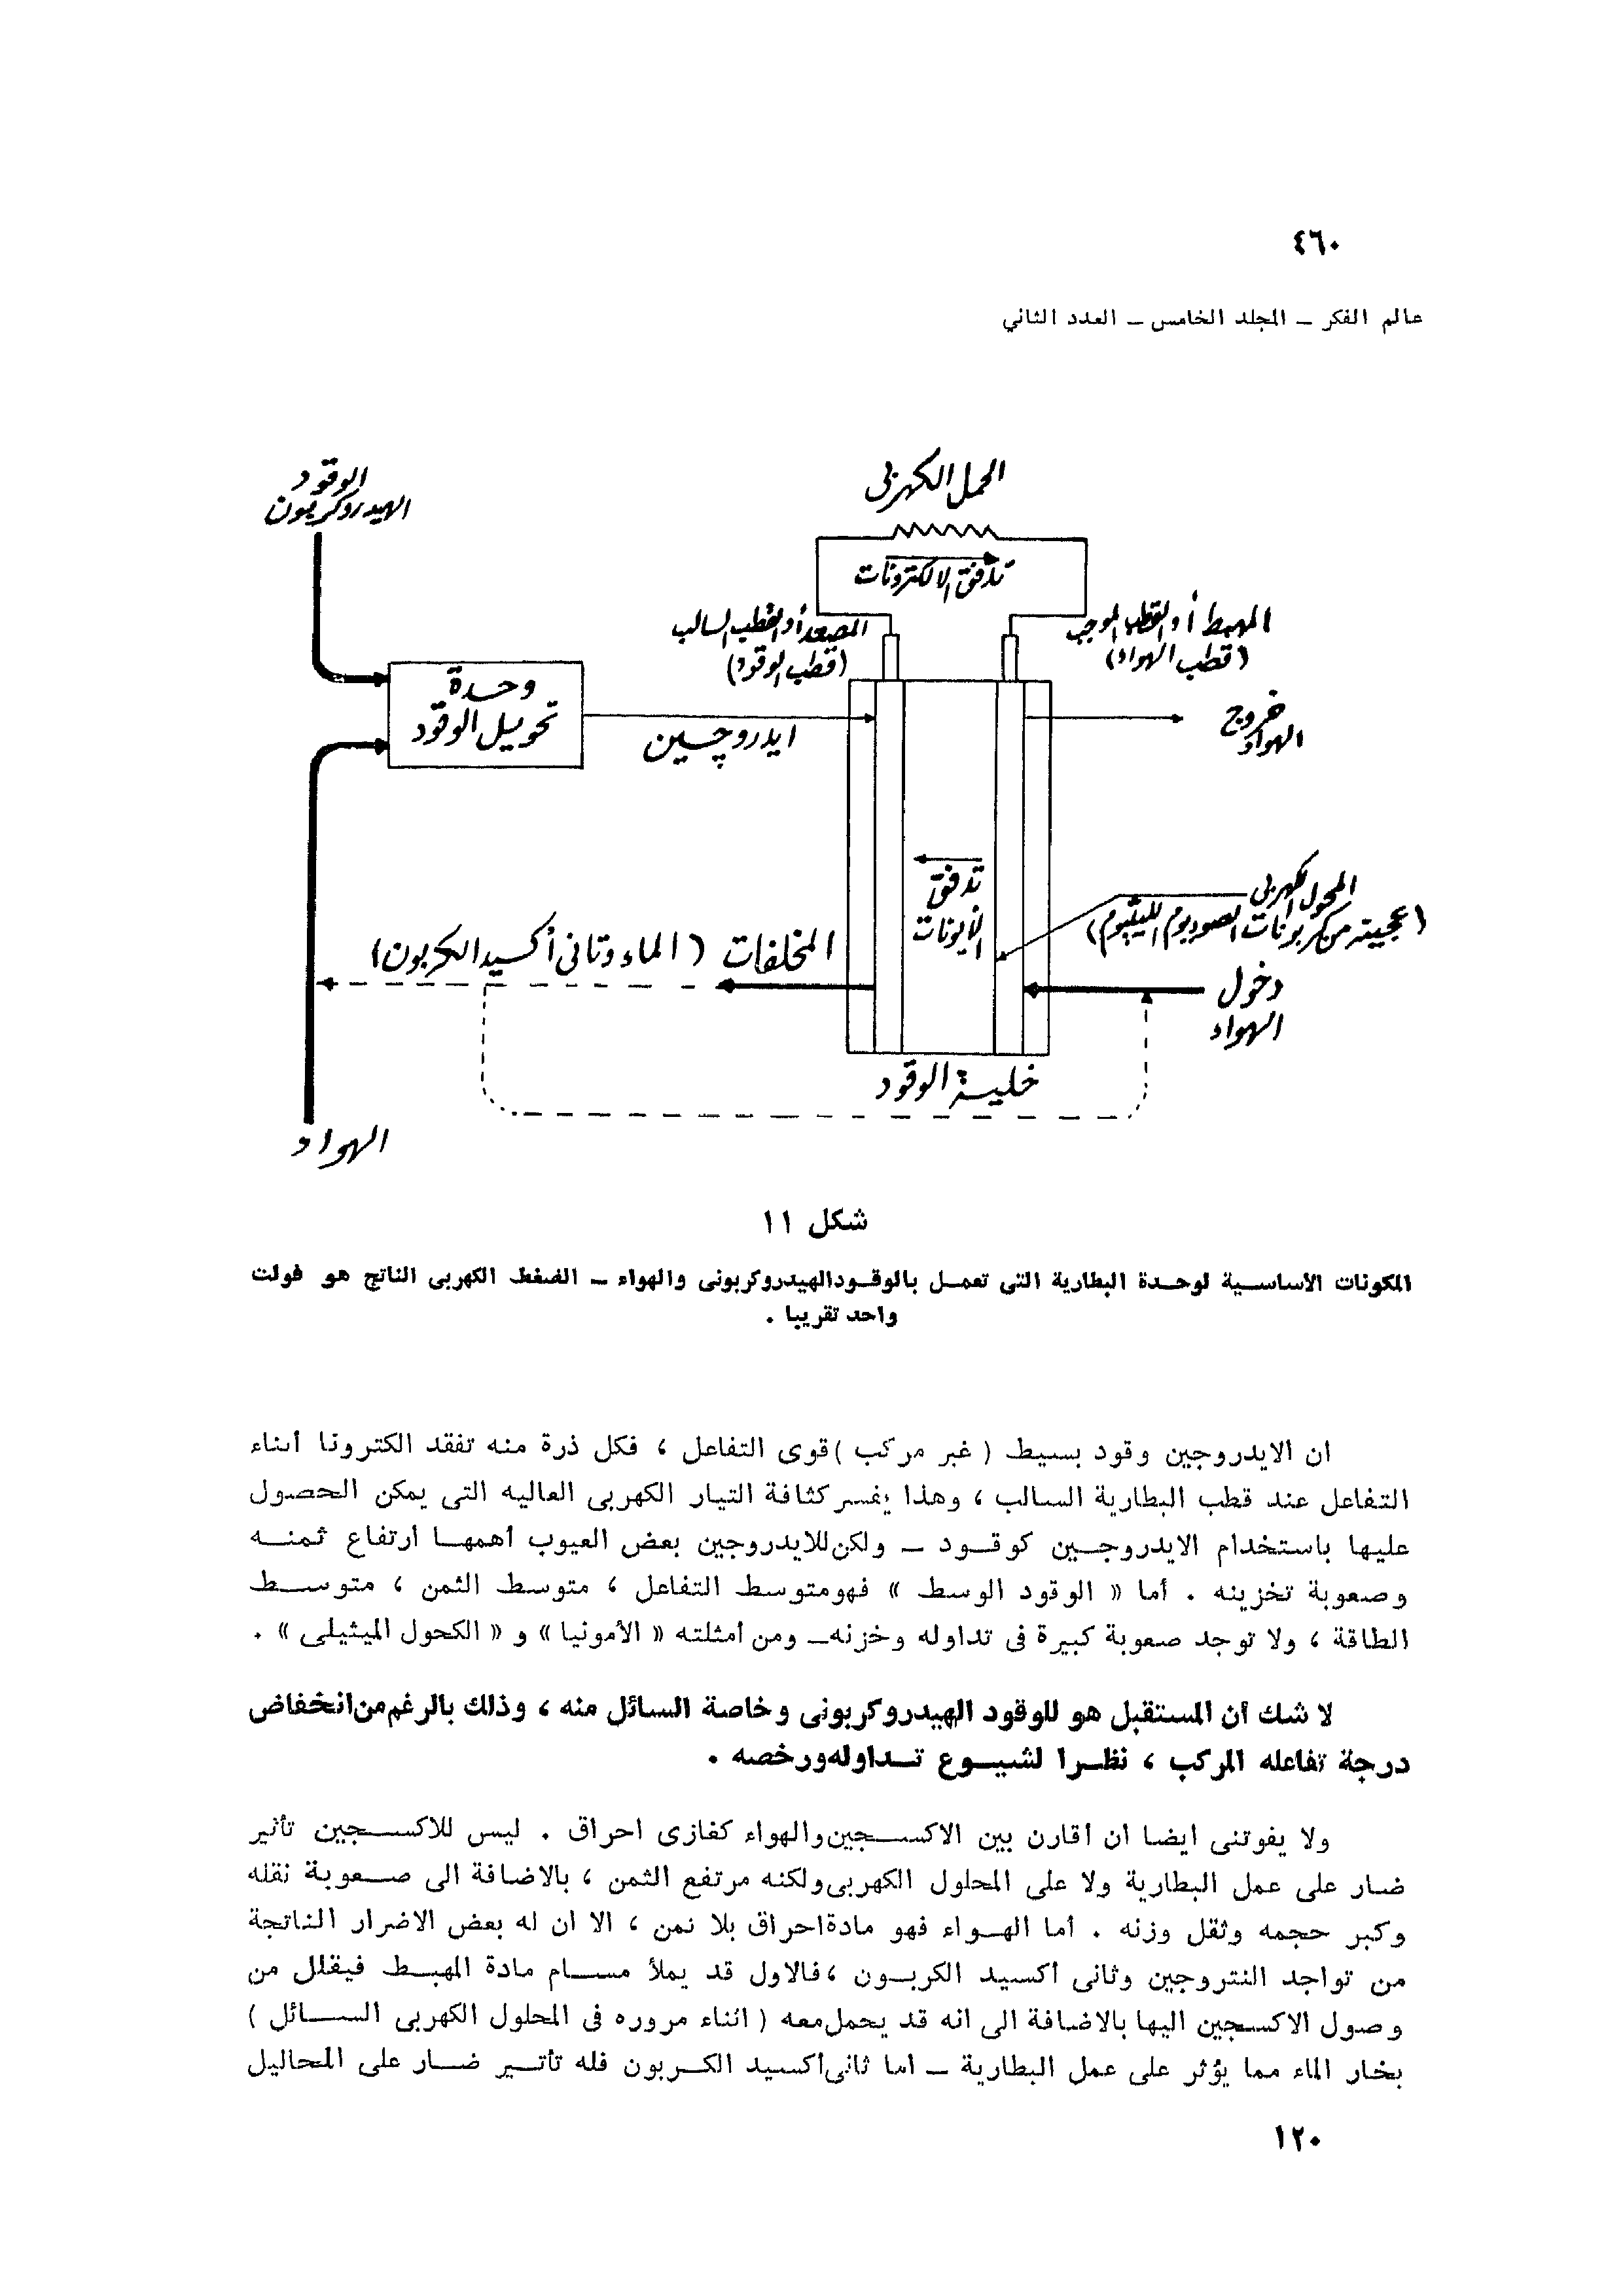 ٤٦٠
عالم الفكر ــ المجلد الخامس ــ العدد الثاني
الحمل الكهربى
الوقود
الهيدروكربون
تدفق الالكترونات
المهبط أو القطب الموجب
(قطب الهواء)
المصعد أو القطب السالب
(قطب الوقود)
وحدة
تحويل الوقود
ايدروچسين
خروج
الهواء
تدفق
الأيونات
المحلول الكهربى
(عجينة من كربونات الصوديوم الليثيوم)
المخلفات (الماء وثانى أكسيد الكربون)
دخول
الهواء
خلية الوقود
الهواء
شكل ١١
المكونات الاساسية لوحدة البطارية التى تعمل بالوقود الهيدروكربونى والهواء ــ الضغط الكهربى الناتج هو فولت
واحد تقريبا .
ان الايدروجين وقود بسيط ( غير مركب ) قوى التفاعل ، فكل ذرة منه تفقد الكترونا أثناء
التفاعل عند قطب البطارية السالب ، وهذا يفسر كثافة التيار الكهربى العاليه التى يمكن الحصول
عليها باستخدام الايدروجين كوقود ــ ولكن للايدروجين بعض العيوب أهمها ارتفاع ثمنه
وصعوبة تخزينه . أما « الوقود الوسط » فهو متوسط التفاعل ، متوسط الثمن ، متوسط
الطاقة ، ولا توجد صعوبة كبيرة فى تداوله وخزنه ــ ومن أمثلته « الأمونيا » و « الكحول الميثيلى » .
لا شك أن المستقبل هو للوقود الهيدروكربونى وخاصة السائل منه ، وذلك بالرغم من انخفاض
درجة تفاعله المركب ، نظرا لشيوع تداوله ورخصه .
ولا يفوتنى ايضا ان أقارن بين الاكسجين والهواء كغازى احراق . ليس للاكسجين تأثير
ضار على عمل البطارية ولا على المحلول الكهربى ولكنه مرتفع الثمن ، بالاضافة الى صعوبة نقله
وكبر حجمه وثقل وزنه . أما الهواء فهو مادة احراق بلا ثمن ، الا ان له بعض الاضرار الناتجة
من تواجد النتروجين وثانى أكسيد الكربون ، فالاول قد يملأ مسام مادة المهبط فيقلل من
وصول الاكسجين اليها بالاضافة الى انه قد يحمل معه ( اثناء مروره فى المحلول الكهربى السائل )
بخار الماء مما يؤثر على عمل البطارية ــ أما ثانى أكسيد الكربون فله تأثير ضار على المحاليل
١٢٠